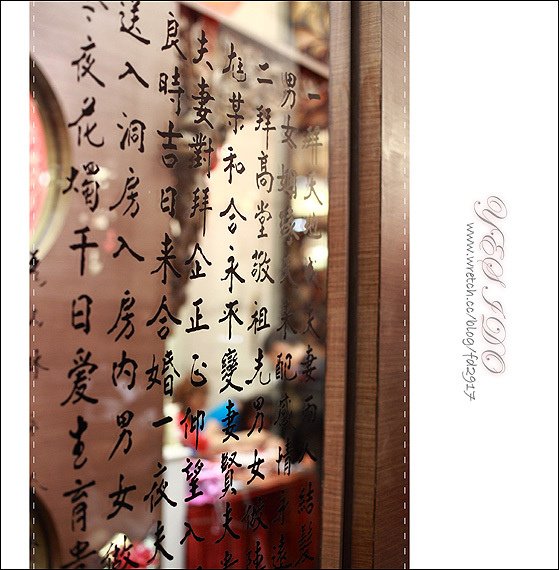 一拜天地成夫妻兩人結髮
男女
來配感情
二拜高堂敬祖先男女
某和合永不變妻賢夫
夫妻對拜企正正仰望入
良時吉日來合婚一夜夫
送入洞房入房內男女
夜花燭千日愛生育貴
YES I DO
www.wretch.cc/blog/fd2917